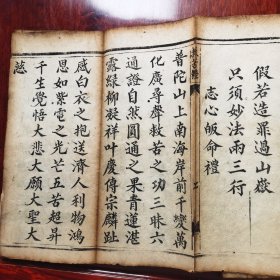 假若造罪過山嶽
只須妙法兩三行
志心皈命禮
普陀山上南海岸前千變萬
化廣尋聲救苦之功三昧六
通證自然圓通之果青蓮湛
露綠柳凝祥叶慶傳宗麟趾
感白衣之抱送濟人利物鴻
思如紫電之光芒五苦超昇
千生覺悟大悲大願大聖大
慈